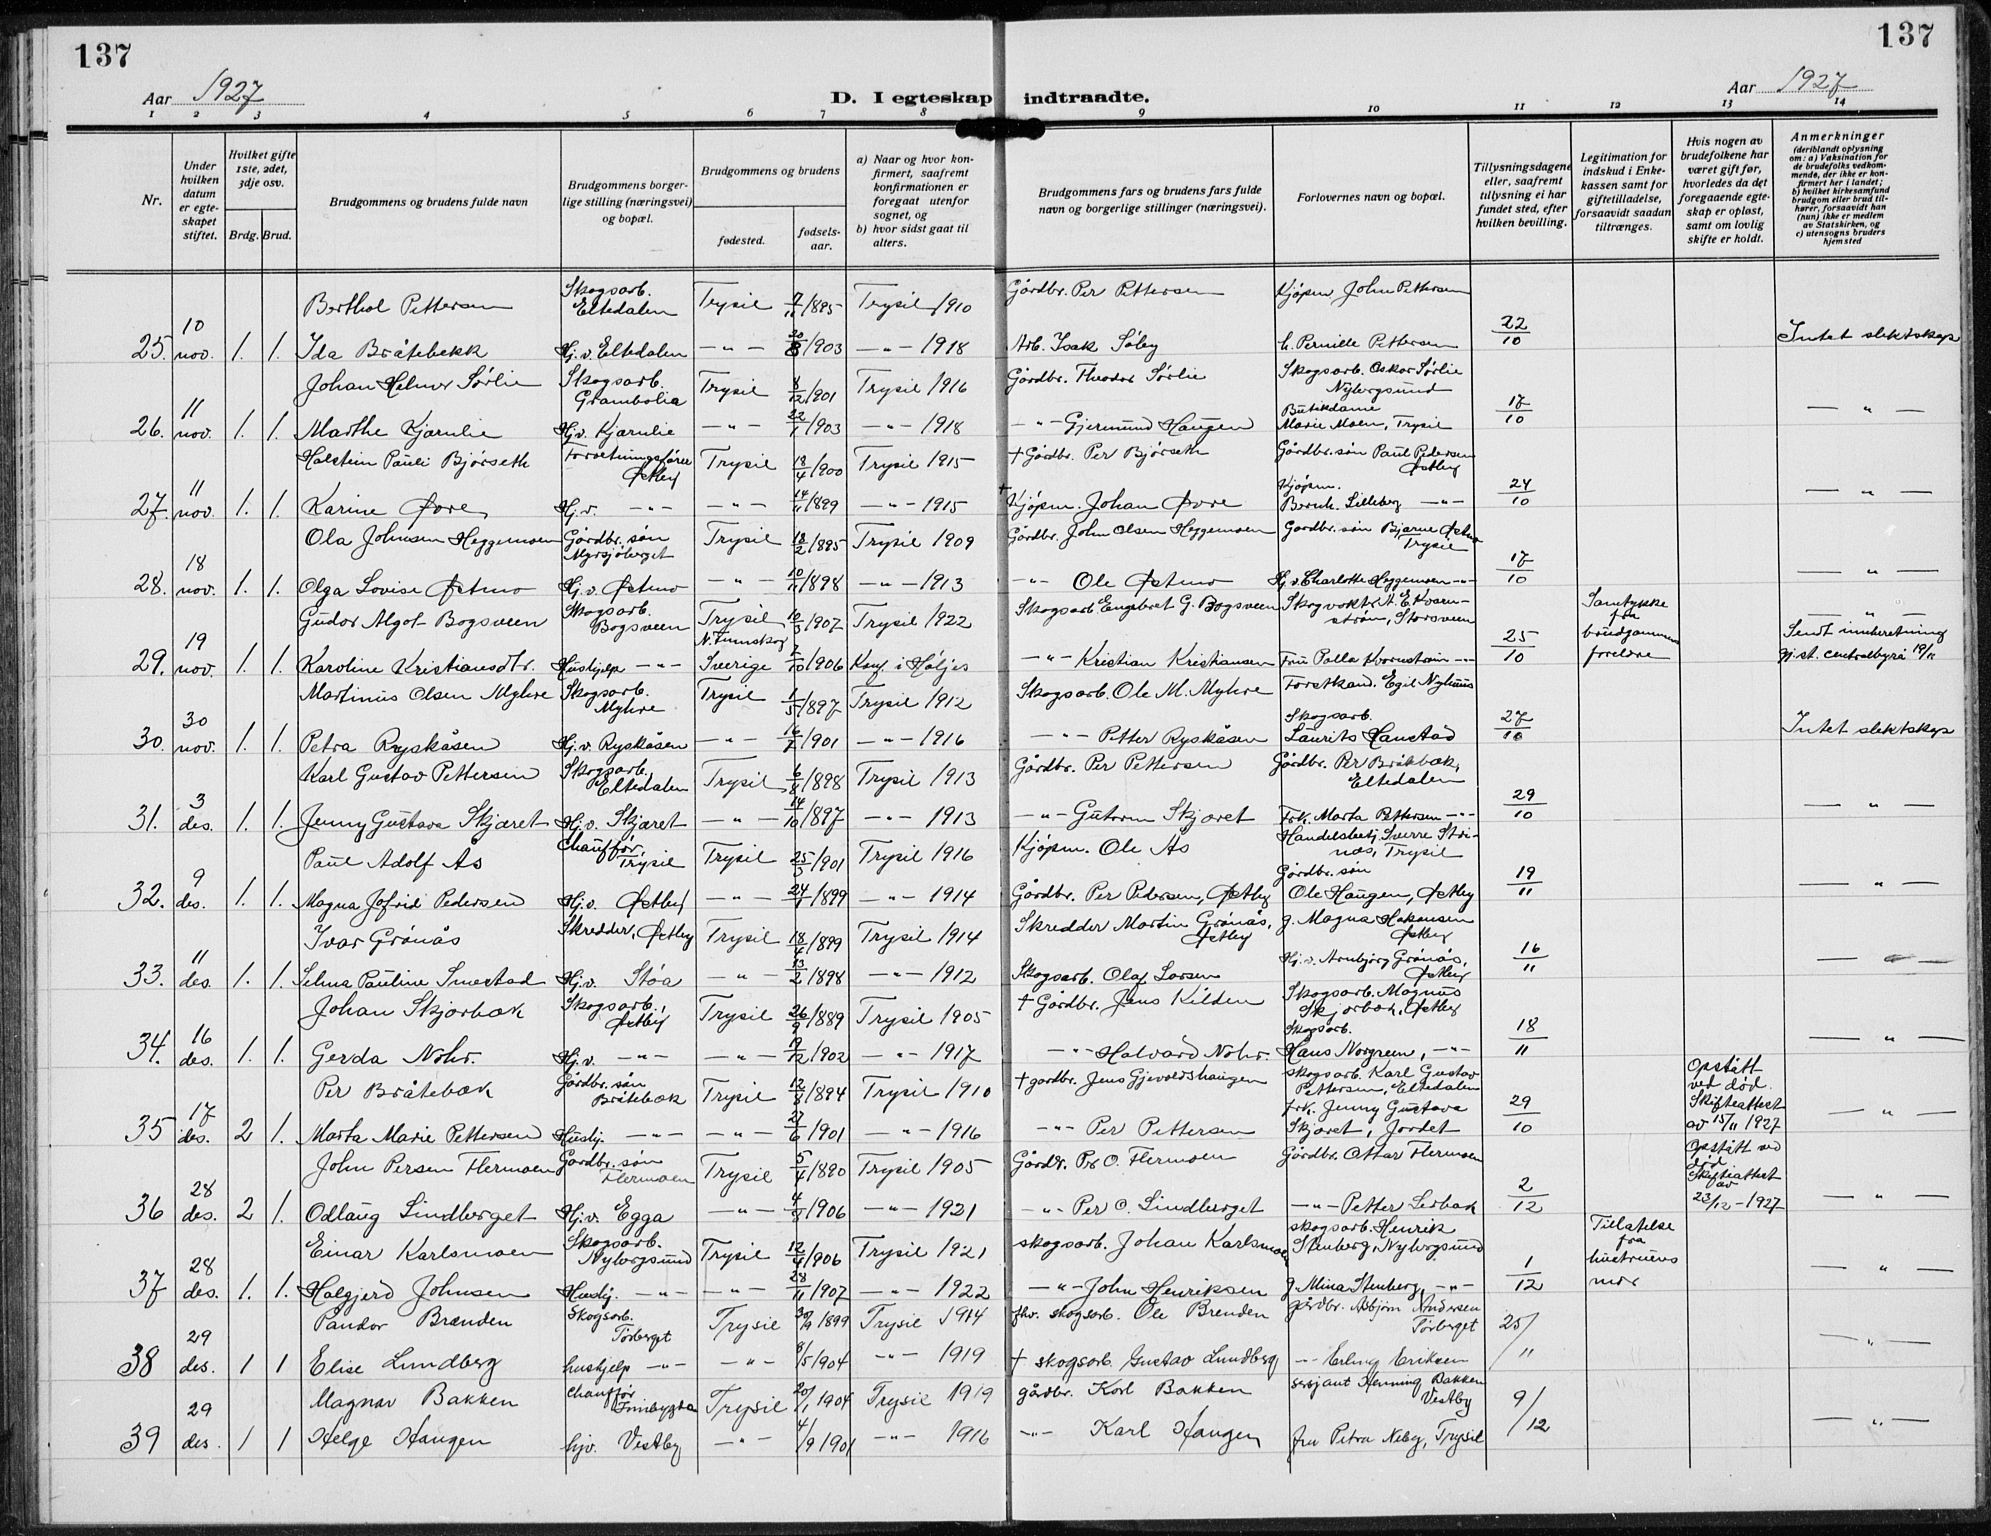 137
137
Aar 1927
Aar 1927
D. I egteskap indtraadte.
1 2 3 4 5 6 7 8 9 10 11 12 13 14
Nr.
Under hvilken datum er egteskapet stiftet.
Hvilket gifte 1ste, 2det, 3dje osv.
Brdg. Brud.
Brudgommens og brudens fulde navn
Brudgommens borgerlige stilling (næringsvei) og bopæl.
Brudgommens og brudens
fødested.
fødselsaar.
a) Naar og hvor konfirmert, saafremt konfirmationen er foregaat utenfor sognet, og
b) hvor sidst gaat til alters.
Brudgommens fars og brudens fars fulde navn og borgerlige stillinger (næringsvei).
Forlovernes navn og bopæl.
Tillysningsdagene eller, saafremt tillysning ei har fundet sted, efter hvilken bevilling.
Legitimation for indskud i Enkekassen samt for giftetilladelse, forsaavidt saadan tiltrænges.
Hvis nogen av brudefolkene har været gift før, hvorledes da det foregaaende egteskap er opløst, samt om lovlig skifte er holdt.
Anmerkninger (deriblandt oplysning om: a) Vaksination for de brudefolks vedkommende, der ikke er konfirmert her i landet; b) hvilket kirkesamfund brudgom eller brud tilhører, forsaavidt han (hun) ikke er medlem av Statskirken, og c) utensogns bruders hjemsted
Berthol Pettersen Skogsarb. Eltedalen Trysil 7/11 1895 Trysil 1910 Gårdbr. Per Pettersen Kjøpm John Pettersen
25. 10 nov. 1. 1. Ida Bråtebekk Hj.v. Eltedalen — " — 20/8 1903 — " — 1918 Arb. Isak Søby h. Pernille Pettersen 22/10 Intet slektskap
Johan Helmer Sørlie Skogsarb. Grambolia Trysil 8/12 1901 Trysil 1916 Gårdbr. Theodor Sørlie Skogsarb. Oskar Sørlie Nybergsund
26. 11 nov. 1. 1. Marthe Kjærnlie Hj.v. Kjærnlie — " — 22/1 1903 — " — 1918 — " — Gjermund Haugen Butikdame Marie Moen, Trysil 17/10 — " —
Halstein Pauli Bjørseth Forretningsfører Østby Trysil 18/4 1900 Trysil 1915 † Gårdbr. Per Bjørseth Gårdbr. søn Paul Pedersen Østby
27. 11 nov. 1. 1. Karine Øvre Hj.v. — " — — " — 14/11 1899 — " — 1915 † Kjøpm. Johan Øvre Kjøpm. Bernh. Lilleberg — " — 24/10 — " —
Ola Johnsen Heggemoen Gårdbr. søn Myrsjøberget Trysil 18/2 1895 Trysil 1909 Gårdbr. John Olsen Heggemoen Gårdbr. søn Bjarne Østmo Trysil
28. 18 nov. 1. 1. Olga Lovise Østmo Hj.v. Østmo — " — 10/11 1898 — " — 1913 — " — Ole Østmo Hj.v. Charlotte Heggemoen — " — 17/10 — " —
Gudor Algot Bogsveen Skogsarb. Bogsveen Trysil 10/3 1907 Trysil 1922 Skogsarb. Engebret G. Bogsveen Skogvokt. A. E. Kvarnstrøm, Storsveen Samtykke fra brudgommens forelдre — " —
29. 19 nov. 1. 1. Karoline Kristiansdtr. Hushjelp — " — N. Finnskog Sverige 7/10 1906 Konf. i Höljes — " — Kristian Kristiansen Fru Palla Kvarnstrøm — " — 25/10 Sendt innberetning t. st. centralbyrå 19/11
Martinus Olsen Myhre Skogsarb. Myhre Trysil 1/5 1897 Trysil 1912 Skogsarb. Ole M. Myhre Forstkand. Egil Nyhuus
30. 30 nov. 1. 1. Petra Ryskåsen Hj.v. Ryskåsen — " — 16/7 1901 — " — 1916 — " — Petter Ryskåsen Skogsarb. Laurits Hanstad 27/10 Intet slektskap
Karl Gustav Pettersen Skogsarb. Eltedalen Trysil 6/8 1898 Trysil 1913 Gårdbr. Per Pettersen Gårdbr. Per Bråtbæk, Eltedalen
31. 3 des. 1. 1. Jenny Gustava Skjæret Hj.v. Skjæret — " — 14/10 1897 — " — 1913 — " — Gutorm Skjæret Frk. Marta Pettersen — " — 29/10 — " —
Paul Adolf Ås Chauffør, Trysil Trysil 25/3 1901 Trysil 1916 Kjøpm. Ole Ås Handelsbetj. Sverre Strinæs, Trysil
32. 9 des. 1. 1. Magna Jofrid Pedersen Hj.v. Østby — " — 24/1 1899 — " — 1914 Gårdbr. Per Pedersen, Østby Gårdbr. søn Ole Haugen, Østby 19/11 — " —
Ivar Grønås Skredder, Østby Trysil 18/4 1899 Trysil 1914 Skredder Martin Grønås, Østby g. Magna Hakansen Østby
33. 11 des. 1. 1. Selma Pauline Smestad Hj.v. Støa — " — 13/2 1898 — " — 1912 Skogsarb. Olaf Larsen Hj.v. Arnbjørg Grønås, Østby 16/11 — " —
Johan Skjærbæk Skogsarb., Østby Trysil 26/9 1889 Trysil 1905 † Gårdbr. Jens Kilden Skogsarb. Magnus Skjærbæk, Østby
34. 16 des. 1. 1. Gerda Nohr. Hj.v. — " — — " — 19/12 1902 — " — 1917 — " — Halvard Nohr. Skogsarb. Hans Norgreen, — " — 18/11 — " —
Per Bråtebæk Gårdbr. søn Bråtebæk Trysil 12/8 1894 Trysil 1910 † gårdbr. Jens Gjevoldshaugen skogsarb. Karl Gustav Pettersen, Eltedalen Opstått ved død.
35 17 des. 2 1. Marta Marie Pettersen Hushj. — " — — " — 27/6 1901 — " — 1916 — " — Per Pettersen frk. Jenny Gustava Skjæret, Jordet 29/10 Skifteattest av 15/11 1927 — " —
John Persen Flermoen Gårdbr. søn Flermoen Trysil 5/4 1890 Trysil 1905 Gårdbr. Per O. Flermoen Gårdbr. Ottar Flermoen Opstått ved død
36 28 des. 2 1. Odlaug Lindberget Hj.v. Egga — " — 4/8 1906 — " — 1921 — " — Per O. Lindberget — " — Petter Lerbæk 2/12 Skifteattest av 23/12 - 1927 — " —
Einar Karlsmoen Skogsarb. Nybergsund Trysil 12/4 1906 Trysil 1921 skogsarb. Johan Karlsmoen skogsarb. Henrik Stenberg, Nybergsund Tillatelse fra hustruens mor
37 28 des. 1. 1. Halgjerd Johnsen Hushj. — " — — " — 28/11 1907 — " — 1922 — " — John Henriksen g. Mina Stenberg, — " — 1/12 — " —
Pandor Brenden Skogsarb. Tørberget Trysil 30/9 1899 Trysil 1914 fhv. skogsarb. Ole Brenden gårdbr. Asbjørn Andersen Tørberget
38 29 des. 1 1 Elise Lundberg hushjelp — " — — " — 8/5 1904 — " — 1919 † skogsarb. Gustav Lundberg — " — Erling Eriksen 25/11 — " —
Magnar Bakken chauffør Innbygda Trysil 20/1 1904 Trysil 1919 gårdbr. Karl Bakken sersjant Henning Bakken Vestby
39 29 des. 1 1 Helge Haugen hjv. Vestby — " — 4/9 1901 — " — 1916 — " — Karl Haugen fru Petra Neby, Trysil 9/12 — " —